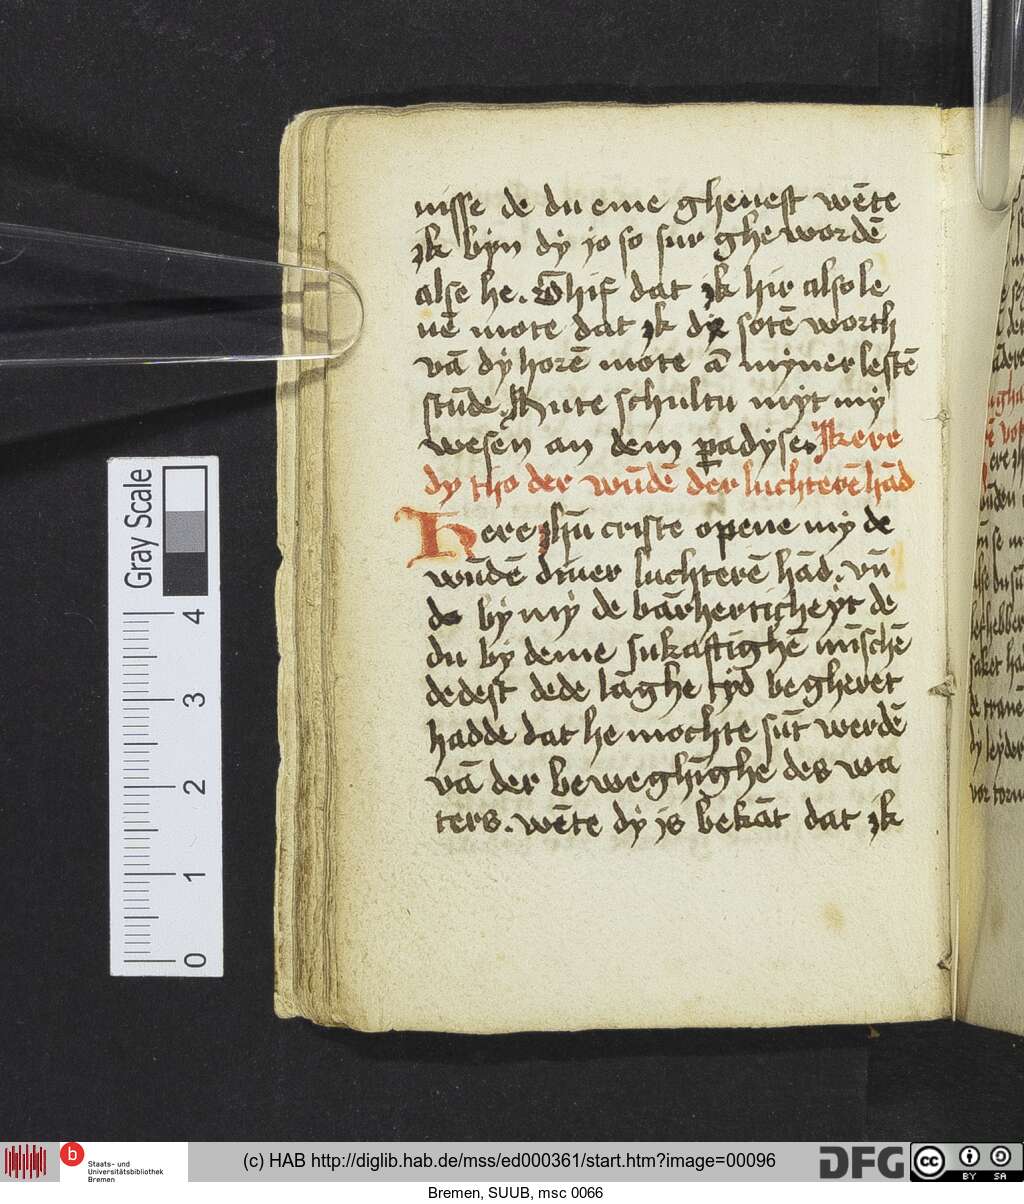 nisse de du eme gheuest wēte
ik byn dy jo so sur ghewordē
alse he. Ghif dat ik hir also le
uē mote dat ik dy sotē worth
vā dy horē mote ā myner lestē
stūde. Hute schultu myt my
wesen an dem padyse. Kere
dy tho der wūdē der luchterē hād
Here ihū criste opene my de
wūdē diner luchterē hād. vn̄
do by my de bārherticheyt de
du by deme sukaftighē mīschē
dedest dede lāghe tyd begheret
hadde dat he mochte sūt werdē
vā der beweghīghe des wa
ters. wēte dy is bekāt dat ik
Gray Scale
4
3
2
1
0
b
Staats- und
Universitätsbibliothek
Bremen
(c) HAB http://diglib.hab.de/mss/ed000361/start.htm?image=00096
DFG
cc
BY SA
Bremen, SUUB, msc 0066